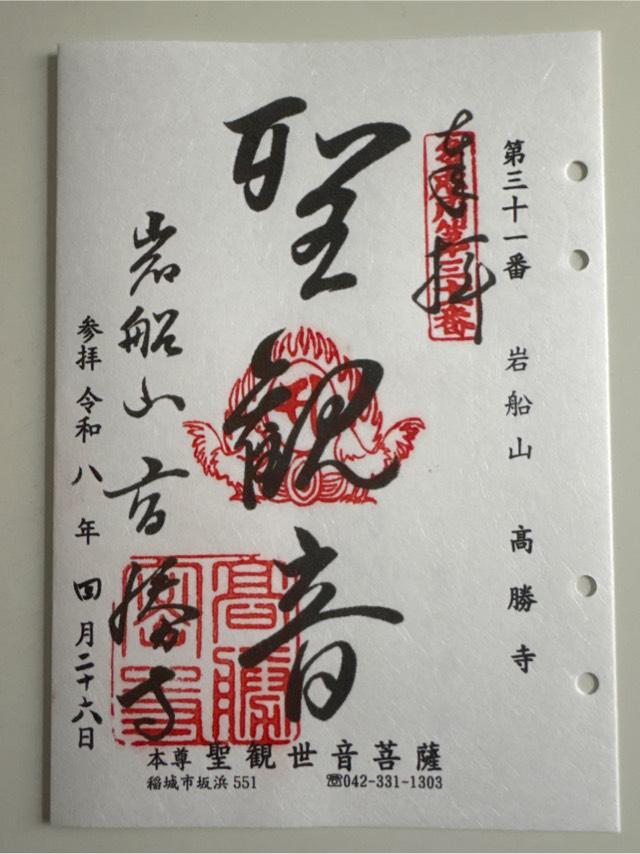 第三十一番 岩船山 高勝寺
奉拝
聖観音
岩船山高勝寺
参拝 令和八年四月二十六日
本尊 聖観世音菩薩
稲城市坂浜551 ☏042-331-1303